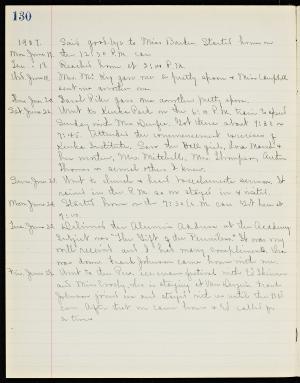 130
1907. Said good-bye to Miss Barden. Started home on
Mon. June 17. the 12:30 P.M. car.
Tue. " 18. Reached home at 2:00 P.M.
Wed. June 19. Mrs. Mc Key gave me a pretty apron & Miss Campbell
sent me another one.
Thu. June 20. Sarah Peter gave me another pretty apron.
Sat. June 22. Went to Keuka Park on the 6:10 P.M. train to spend
Sunday with Mrs. Got there about 7:23 or
7:45. Attended the commencement exercises of
Keuka Institute. Saw the Ball girls, Lora Marsh &
her mother, Mrs. Mitchell, Mrs. Thompson,
Thomas & several others I knew.
Sun. June 23. Went to church & heard baccalaureate sermon. It
rained in the P.M. so we stayed in & rested.
Mon. June 24. Started home on the 7:30 A.M. car. Got here at
9:00.
Tue. June 25. Delivered the Alumni Address at the Academy.
Subject was "The Gift of the Nameless." It was very
well received and I had many compliments.
was done. Frank Johnson came home with me.
Fri. June 28. Went to the ice cream festival with Ed
and Miss Moody, who is staying at Van Frank
Johnson joined us and stayed with us until the 10:
car. After that we came home & Ed called for
a time.